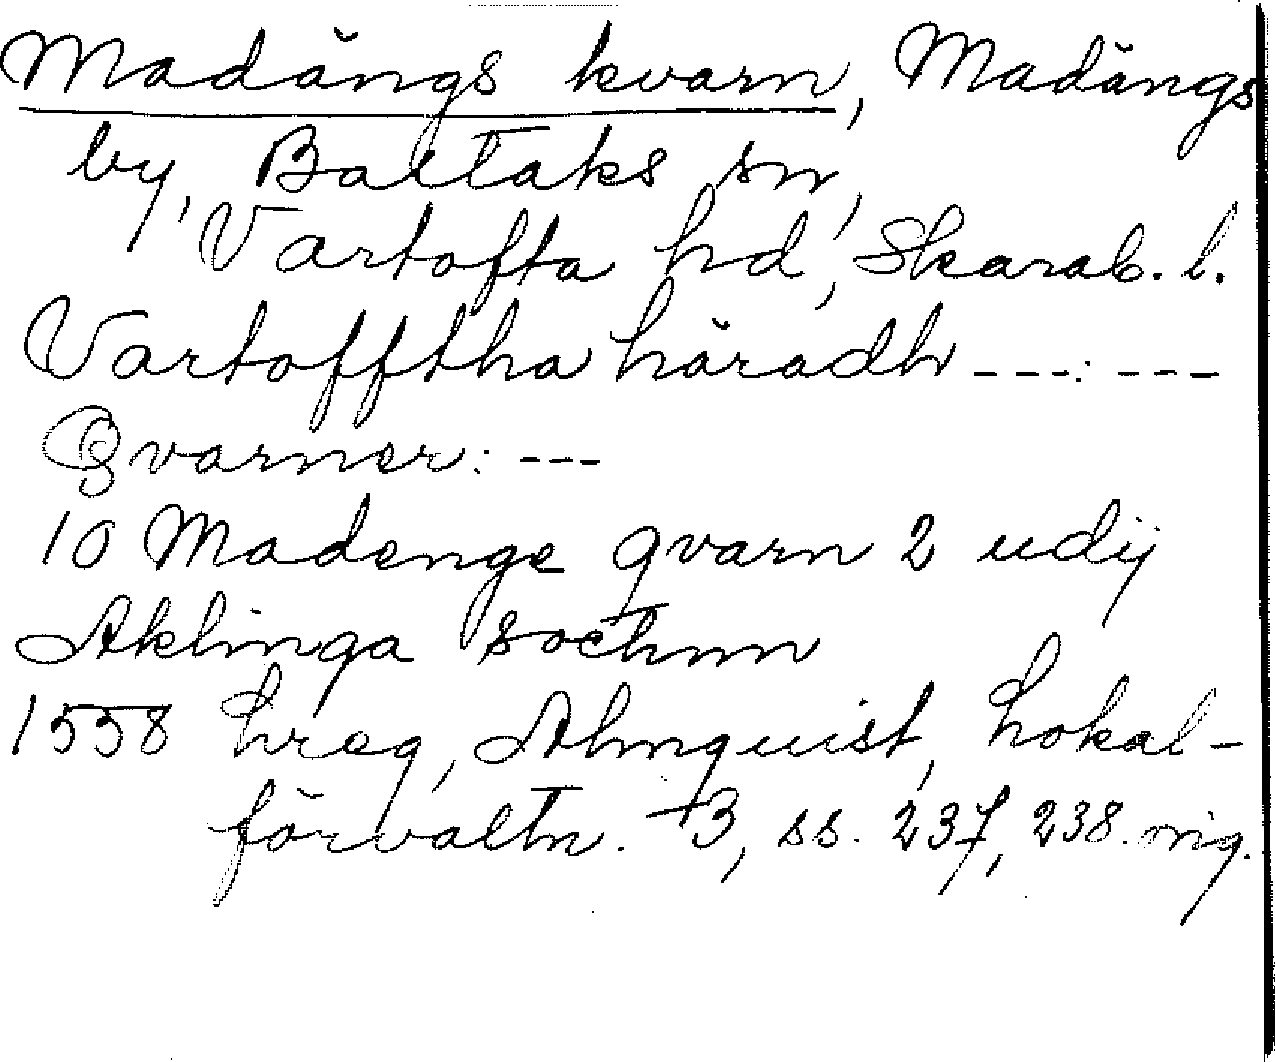 Madängs kvarn, Madängs
by, Baltaks sn,
Vartofta hd, Skarab. l.
Vartofftha häradh ---:---
Qvarner: ---
10 Madenge qvarn 2 udij
Aklinga sochnn
1558 hreg, Almquist, Lokal-
förvaltn. +3, ss. 237, 238. orig.